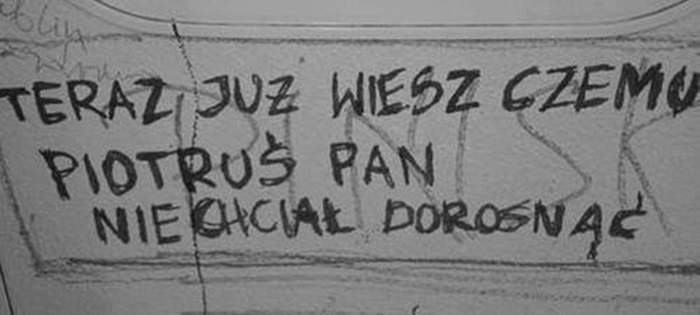 TERAZ JUZ WIESZ CZEMU
PIOTRUŚ PAN
NIE CHCIAŁ DOROSNĄĆ